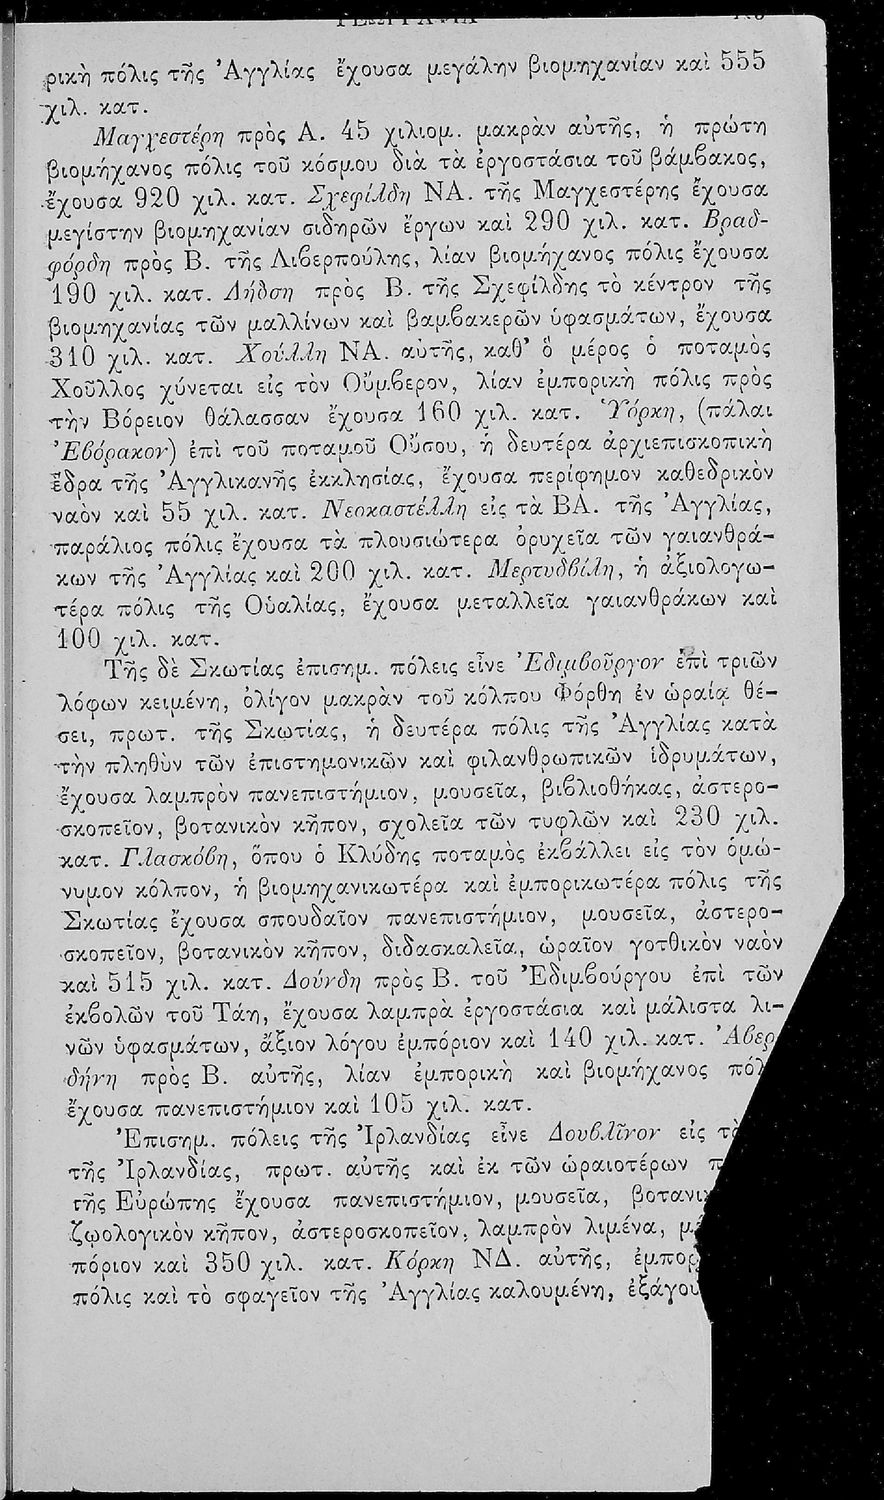 ρικὴ πόλις τῆς Ἀγγλίας ἔχουσα μεγάλην βιομηχανίαν καὶ 555
χιλ. κατ.
Μαγχεστέρη πρὸς Α. 45 χιλιομ. μακρὰν αὐτῆς, ἡ πρώτη
βιομήχανος πόλις τοῦ κόσμου διὰ τὰ ἐργοστάσια τοῦ βάμβακος,
ἔχουσα 920 χιλ. κατ. Σχεφίλδη ΝΑ. τῆς Μαγχεστέρης ἔχουσα
μεγίστην βιομηχανίαν σιδηρῶν ἔργων καὶ 290 χιλ. κατ. Βραδ-
φόρδη πρὸς Β. τῆς Λιβερπούλης, λίαν βιομήχανος πόλις ἔχουσα
190 χιλ. κατ. Λήδση πρὸς Β. τῆς Σχεφίλδης τὸ κέντρον τῆς
βιομηχανίας τῶν μαλλίνων καὶ βαμβακερῶν ὑφασμάτων, ἔχουσα
310 χιλ. κατ. Χούλλη ΝΑ. αὐτῆς, καθ' ὃ μέρος ὁ ποταμὸς
Χοῦλλος χύνεται εἰς τὸν Οὔμβερον, λίαν ἐμπορικὴ πόλις πρὸς
τὴν Βόρειον θάλασσαν ἔχουσα 160 χιλ. κατ. Ὑόρκη, (πάλαι
Ἐβόρακον) ἐπὶ τοῦ ποταμοῦ Οὔσου, ἡ δευτέρα ἀρχιεπισκοπικὴ
ἕδρα τῆς Ἀγγλικανῆς ἐκκλησίας, ἔχουσα περίφημον καθεδρικὸν
ναὸν καὶ 55 χιλ. κατ. Νεοκαστέλλη εἰς τὰ ΒΑ. τῆς Ἀγγλίας,
παράλιος πόλις ἔχουσα τὰ πλουσιώτερα ὀρυχεῖα τῶν γαιανθρά-
κων τῆς Ἀγγλίας καὶ 200 χιλ. κατ. Μερτυδβίλη, ἡ ἀξιολογω-
τέρα πόλις τῆς Οὐαλίας, ἔχουσα μεταλλεῖα γαιανθράκων καὶ
100 χιλ. κατ.
Τῆς δὲ Σκωτίας ἐπισημ. πόλεις εἶνε Ἐδιμβοῦργον ἐπὶ τριῶν
λόφων κειμένη, ὀλίγον μακρὰν τοῦ κόλπου Φόρθη ἐν ὡραίᾳ θέ-
σει, πρωτ. τῆς Σκωτίας, ἡ δευτέρα πόλις τῆς Ἀγγλίας κατὰ
τὴν πληθὺν τῶν ἐπιστημονικῶν καὶ φιλανθρωπικῶν ἱδρυμάτων,
ἔχουσα λαμπρὸν πανεπιστήμιον, μουσεῖα, βιβλιοθήκας, ἀστερο-
σκοπεῖον, βοτανικὸν κῆπον, σχολεῖα τῶν τυφλῶν καὶ 230 χιλ.
κατ. Γλασκόβη, ὅπου ὁ Κλύδης ποταμὸς ἐκβάλλει εἰς τὸν ὁμώ-
νυμον κόλπον, ἡ βιομηχανικωτέρα καὶ ἐμπορικωτέρα πόλις τῆς
Σκωτίας ἔχουσα σπουδαῖον πανεπιστήμιον, μουσεῖα, ἀστερο-
σκοπεῖον, βοτανικὸν κῆπον, διδασκαλεῖα, ὡραῖον γοτθικὸν ναὸν
καὶ 515 χιλ. κατ. Δούνδη πρὸς Β. τοῦ Ἐδιμβούργου ἐπὶ τῶν
ἐκβολῶν τοῦ Τάη, ἔχουσα λαμπρὰ ἐργοστάσια καὶ μάλιστα λι-
νῶν ὑφασμάτων, ἄξιον λόγου ἐμπόριον καὶ 140 χιλ. κατ. Ἀβερ
δήνη πρὸς Β. αὐτῆς, λίαν ἐμπορικὴ καὶ βιομήχανος πόλ
ἔχουσα πανεπιστήμιον καὶ 105 χιλ. κατ.
Ἐπισημ. πόλεις τῆς Ἰρλανδίας εἶνε Δουβλῖνον εἰς τὰ
τῆς Ἰρλανδίας, πρωτ. αὐτῆς καὶ ἐκ τῶν ὡραιοτέρων π
τῆς Εὐρώπης ἔχουσα πανεπιστήμιον, μουσεῖα, βοτανικ
ζῳολογικὸν κῆπον, ἀστεροσκοπεῖον, λαμπρὸν λιμένα, μέ
πόριον καὶ 350 χιλ. κατ. Κόρκη ΝΔ. αὐτῆς, ἐμπορ
πόλις καὶ τὸ σφαγεῖον τῆς Ἀγγλίας καλουμένη, ἐξάγου